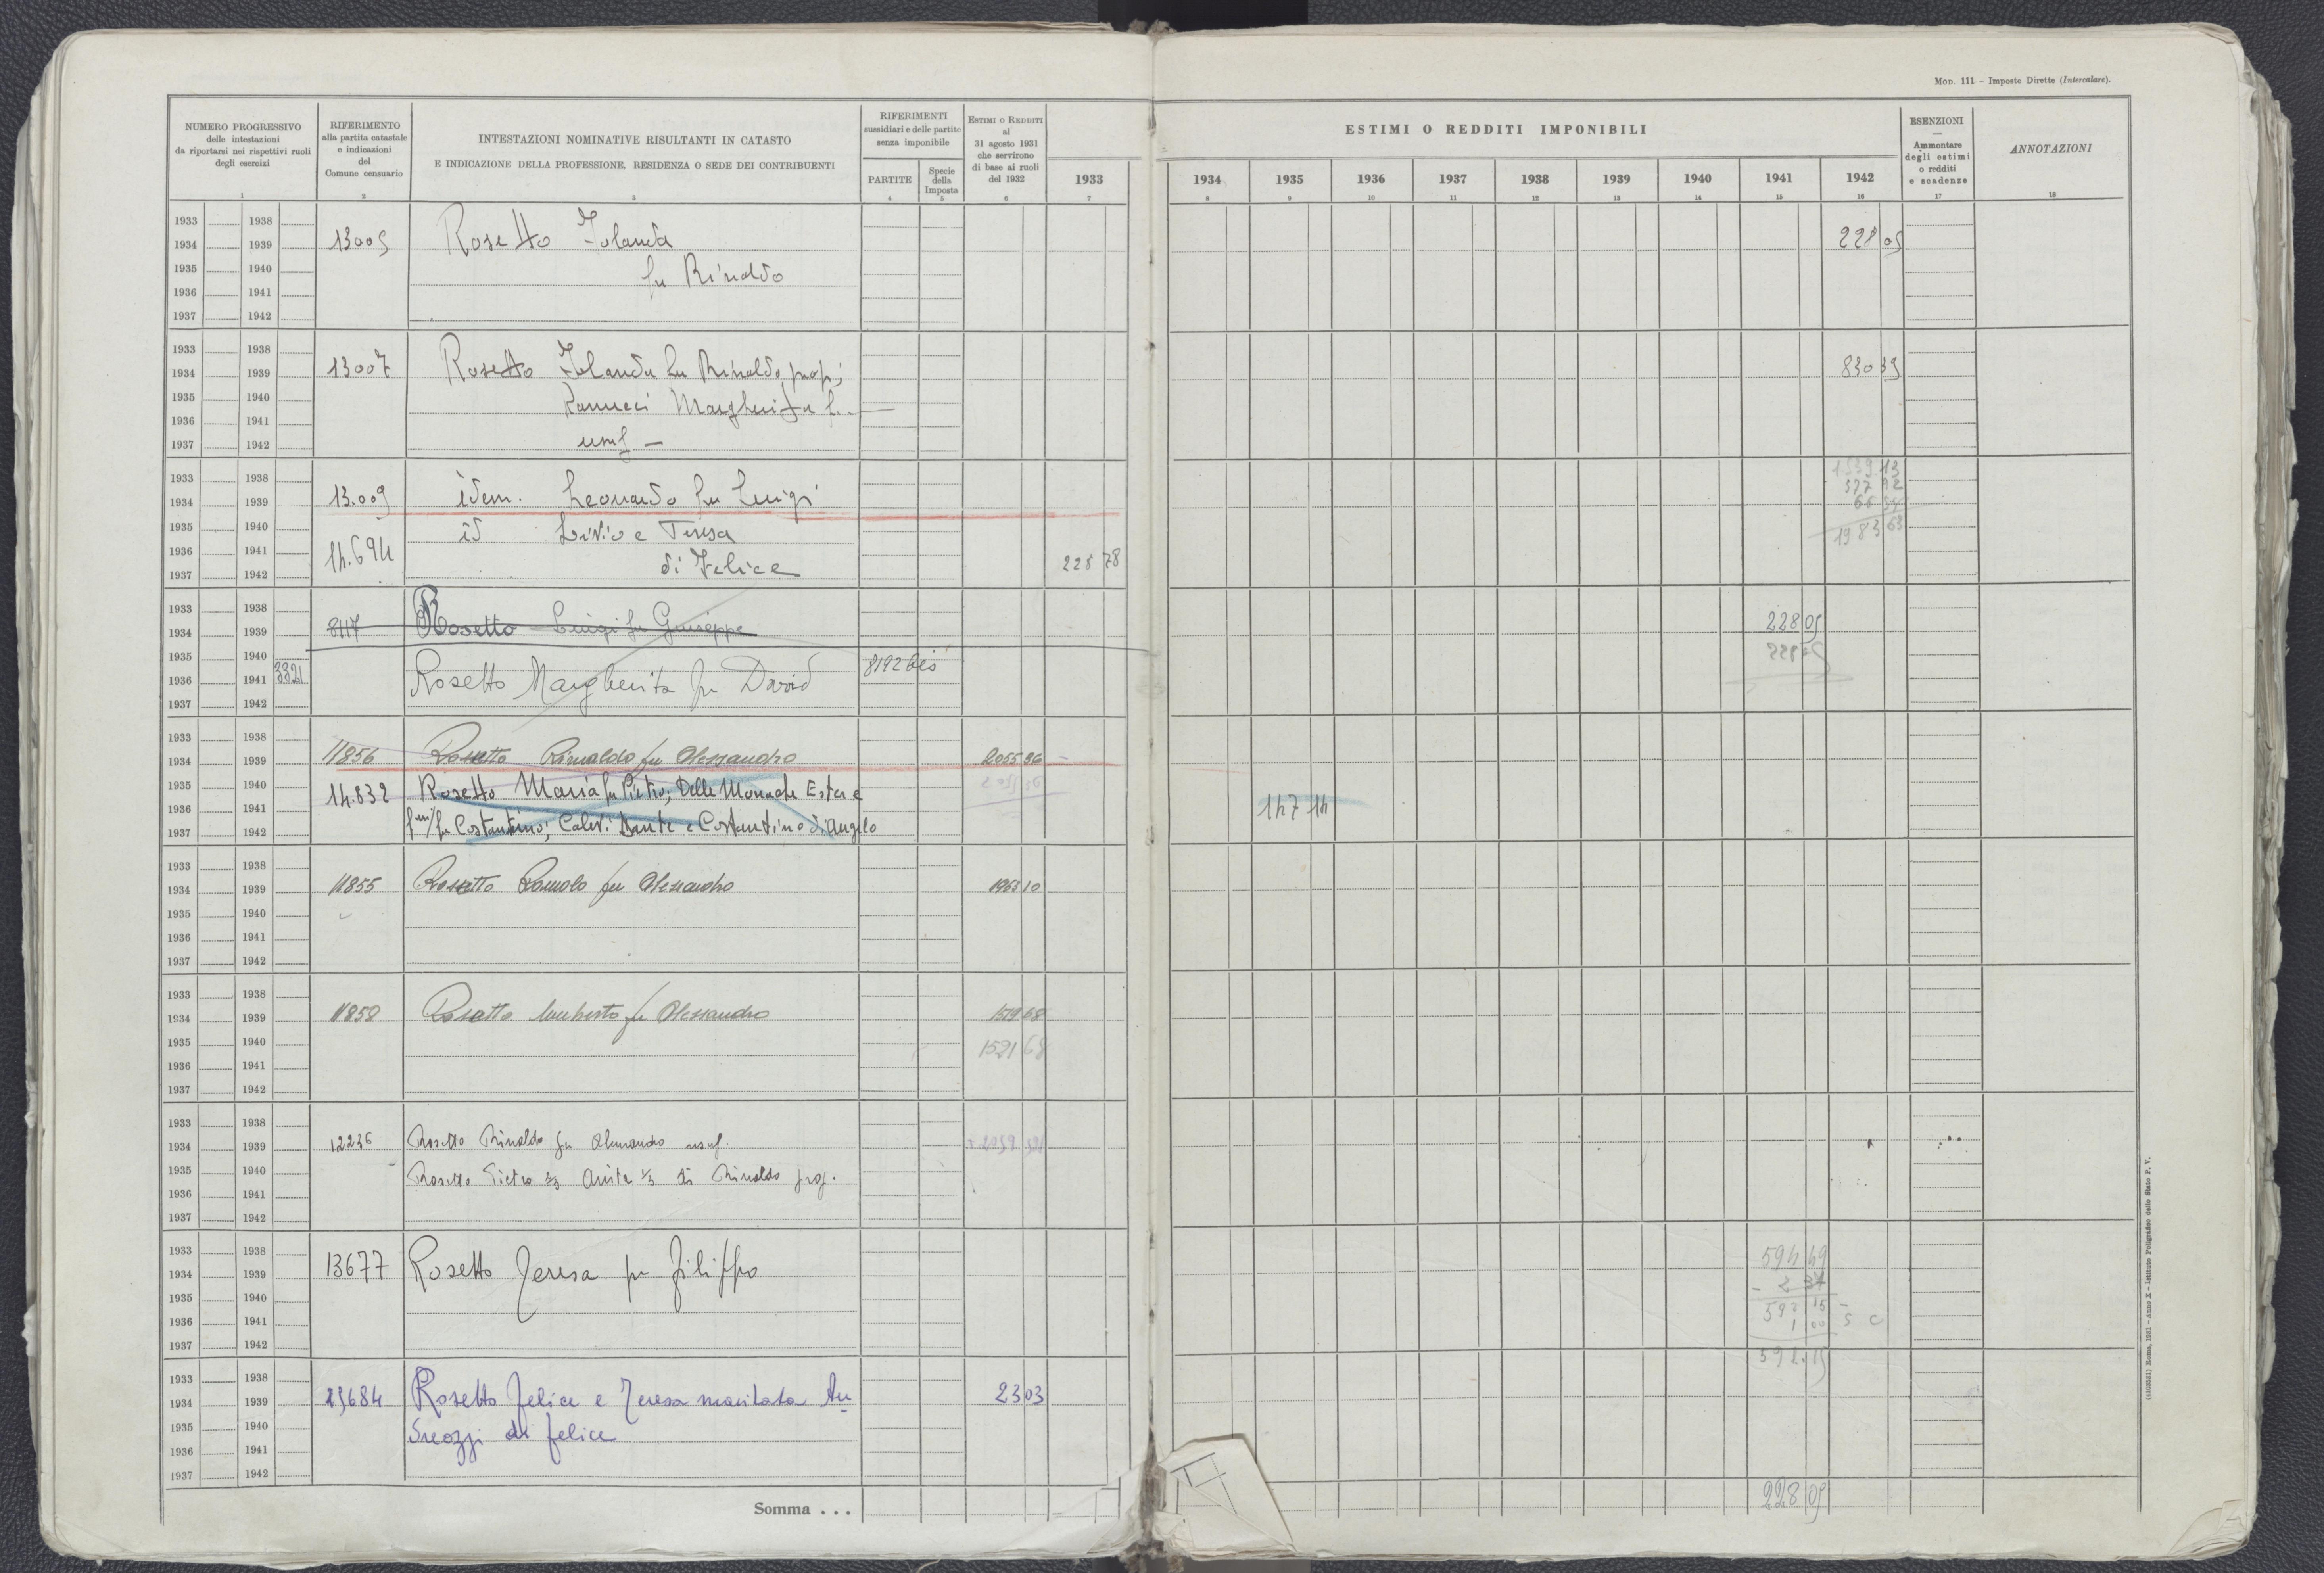 MOD. 111 – Imposte Dirette (Intercalare).
NUMERO PROGRESSIVO
delle intestazioni
da riportarsi nei rispettivi ruoli
degli esercizi
RIFERIMENTO
alla partita catastale
e indicazioni
del
Comune censuario
INTESTAZIONI NOMINATIVE RISULTANTI IN CATASTO
E INDICAZIONE DELLA PROFESSIONE, RESIDENZA O SEDE DEI CONTRIBUENTI
RIFERIMENTI
sussidiari e delle partite
senza imponibile
PARTITE
Specie
della
Imposta
ESTIMI O REDDITI
al
31 agosto 1931
che servirono
di base ai ruoli
del 1932
ESTIMI O REDDITI IMPONIBILI
1933 1934 1935 1936 1937 1938 1939 1940 1941 1942
ESENZIONI
—
Ammontare
degli estimi
o redditi
e scadenze
ANNOTAZIONI
1 2 3 4 5 6 7 8 9 10 11 12 13 14 15 16 17 18
1933 1938
1934 1939 13005 Rosetto Iolanda 228 05
1935 1940 fu Rinaldo
1936 1941
1937 1942
1933 1938
1934 1939 13007 Rosetto Iolanda fu Rinaldo prop;
1935 1940 Margherita
1936 1941
1937 1942 usuf –
1933 1938
1934 1939 13.009 idem. Leonardo fu Luigi
1935 1940 id Livio e Teresa
1936 1941 14.694
1937 1942 di Felice 228 78
1933 1938
1934 1939 8117 Rosetto Luigi fu Giuseppe 228 05
1935 1940 228 05
1936 1941 3321 Rosetto Margherita fu David 8192 bis
1937 1942
1933 1938
1934 1939 11856 Rosetto Rinaldo fu Alessandro 2055 36
1935 1940 14.832 Rosetto Maria fu Pietro; Delle Monache Ester e
1936 1941 147 14
1937 1942 fu Costantino; Dante e Costantino di Angelo
1933 1938
1934 1939 11855 Rosetto Romolo fu Alessandro 1963 10
1935 1940
1936 1941
1937 1942
1933 1938
1934 1939 11858 Rosetto Umberto fu Alessandro 1519 68
1935 1940 1521 68
1936 1941
1937 1942
1933 1938
1934 1939 12236 Rosetto Rinaldo fu Alessandro usuf.
1935 1940 Rosetto Pietro 2/3 Anita 1/3 di Rinaldo prop.
1936 1941
1937 1942
1933 1938 594 49
1934 1939 13677 Rosetto Teresa fu Filippo - 2 34
1935 1940 592 15
1936 1941 1 00 S C
1937 1942
1933 1938
1934 1939 15684 Rosetto Felice e Teresa maritata 23 03
1935 1940 di Felice
1936 1941
1937 1942
Somma . . . 228 05